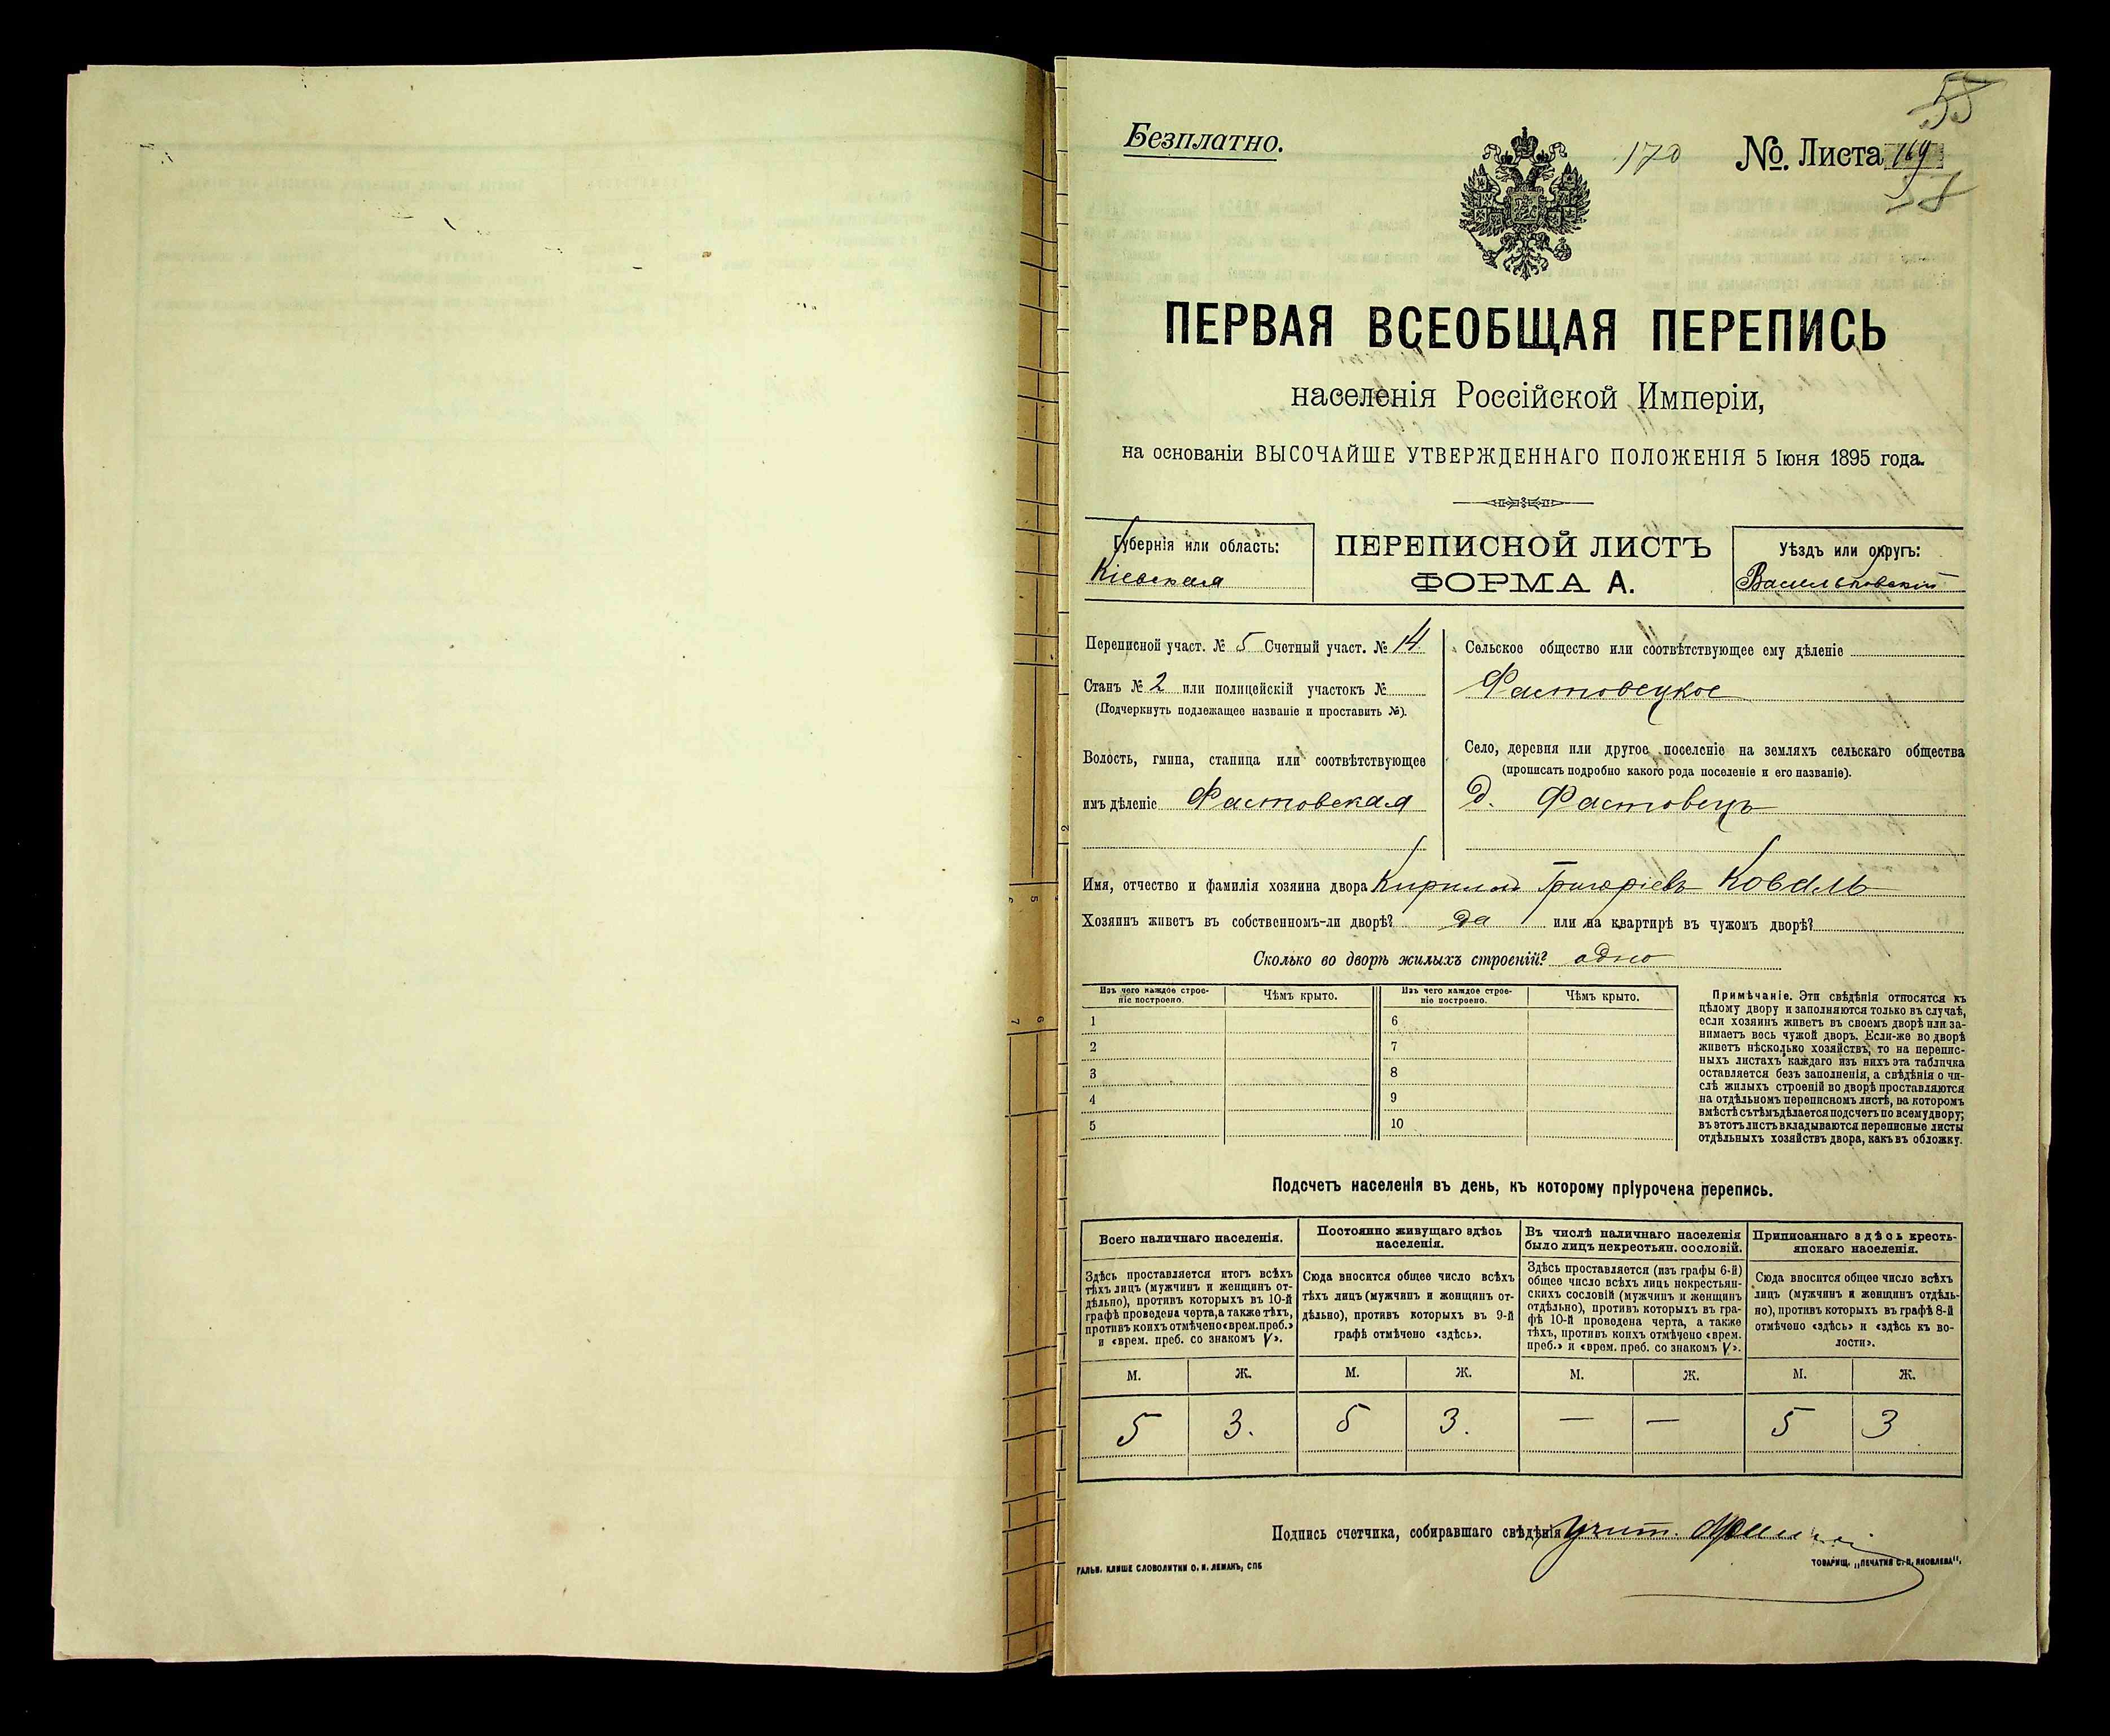 Безплатно.
170
№ Листа 169
ПЕРВАЯ ВСЕОБЩАЯ ПЕРЕПИСЬ
населенія Россійской Имперіи,
на основаніи ВЫСОЧАЙШЕ УТВЕРЖДЕННАГО ПОЛОЖЕНІЯ 5 Іюня 1895 года.
Губернія или область:
Кіевская
ПЕРЕПИСНОЙ ЛИСТЪ
ФОРМА А.
Уѣздъ или округъ:
Васильковскій
Переписной участ. № 5 Счетный участ. № 14.
Станъ № 2 или полицейскій участокъ №
(Подчеркнуть подлежащее названіе и проставить №).
Волость, гмина, станица или соотвѣтствующее
имъ дѣленіе Фастовская
Сельское общество или соотвѣтствующее ему дѣленіе
Фастовецкое
Село, деревня или другое поселеніе на земляхъ сельскаго общества
(прописать подробно какого рода поселеніе и его названіе).
д. Фастовецъ
Имя, отчество и фамилія хозяина двора Кириллъ Григоріевъ Коваль
Хозяинъ живетъ въ собственномъ-ли дворѣ? да или на квартирѣ въ чужомъ дворѣ?
Сколько во дворѣ жилыхъ строеній? одно
Изъ чего каждое строе-
ніе построено.
Чѣмъ крыто.
Изъ чего каждое строе-
ніе построено.
Чѣмъ крыто.
1
2
3
4
5
6
7
8
9
10
Примѣчаніе. Эти свѣдѣнія относятся къ
цѣлому двору и заполняются только въ случаѣ,
если хозяинъ живетъ въ своемъ дворѣ или за-
нимаетъ весь чужой дворъ. Если-же во дворѣ
живетъ нѣсколько хозяйствъ, то на перепис-
ныхъ листахъ каждаго изъ нихъ эта табличка
оставляется безъ заполненія, а свѣдѣнія о чи-
слѣ жилыхъ строеній во дворѣ проставляются
на отдѣльномъ переписномъ листѣ, на которомъ
вмѣстѣ съ тѣмъ дѣлается подсчетъ по всему двору;
въ этотъ листъ вкладываются переписные листы
отдѣльныхъ хозяйствъ двора, какъ въ обложку.
Подсчетъ населенія въ день, къ которому пріурочена перепись.
Всего наличнаго населенія.
Здѣсь проставляется итогъ всѣхъ
тѣхъ лицъ (мужчинъ и женщинъ от-
дѣльно), противъ которыхъ въ 10-й
графѣ проведена черта, а также тѣхъ,
противъ коихъ отмѣчено «врем. преб.»
и «врем. преб. со знакомъ V».
Постоянно живущаго здѣсь
населенія.
Сюда вносится общее число всѣхъ
тѣхъ лицъ (мужчинъ и женщинъ от-
дѣльно), противъ которыхъ въ 9-й
графѣ отмѣчено «здѣсь».
Въ числѣ наличнаго населенія
было лицъ некрестьян. сословій.
Здѣсь проставляется (изъ графы 6-й)
общее число всѣхъ лицъ некрестьян-
скихъ сословій (мужчинъ и женщинъ
отдѣльно), противъ которыхъ въ гра-
фѣ 10-й проведена черта, а также
тѣхъ, противъ коихъ отмѣчено «врем.
преб.» и «врем. преб. со знакомъ V».
Приписаннаго здѣсь кресть-
янскаго населенія.
Сюда вносится общее число всѣхъ
лицъ (мужчинъ и женщинъ отдѣль-
но), противъ которыхъ въ графѣ 8-й
отмѣчено «здѣсь» и «здѣсь къ во-
лости».
М. Ж. М. Ж. М. Ж. М. Ж.
5 3. 5 3. — — 5 3
Подпись счетчика, собиравшаго свѣдѣнія Учит.
ГАЛЬВ. КЛИШЕ СЛОВОЛИТНИ О. И. ЛЕМАНЪ, СПБ
ТОВАРИЩ. „ПЕЧАТНЯ С. П. ЯКОВЛЕВА“.